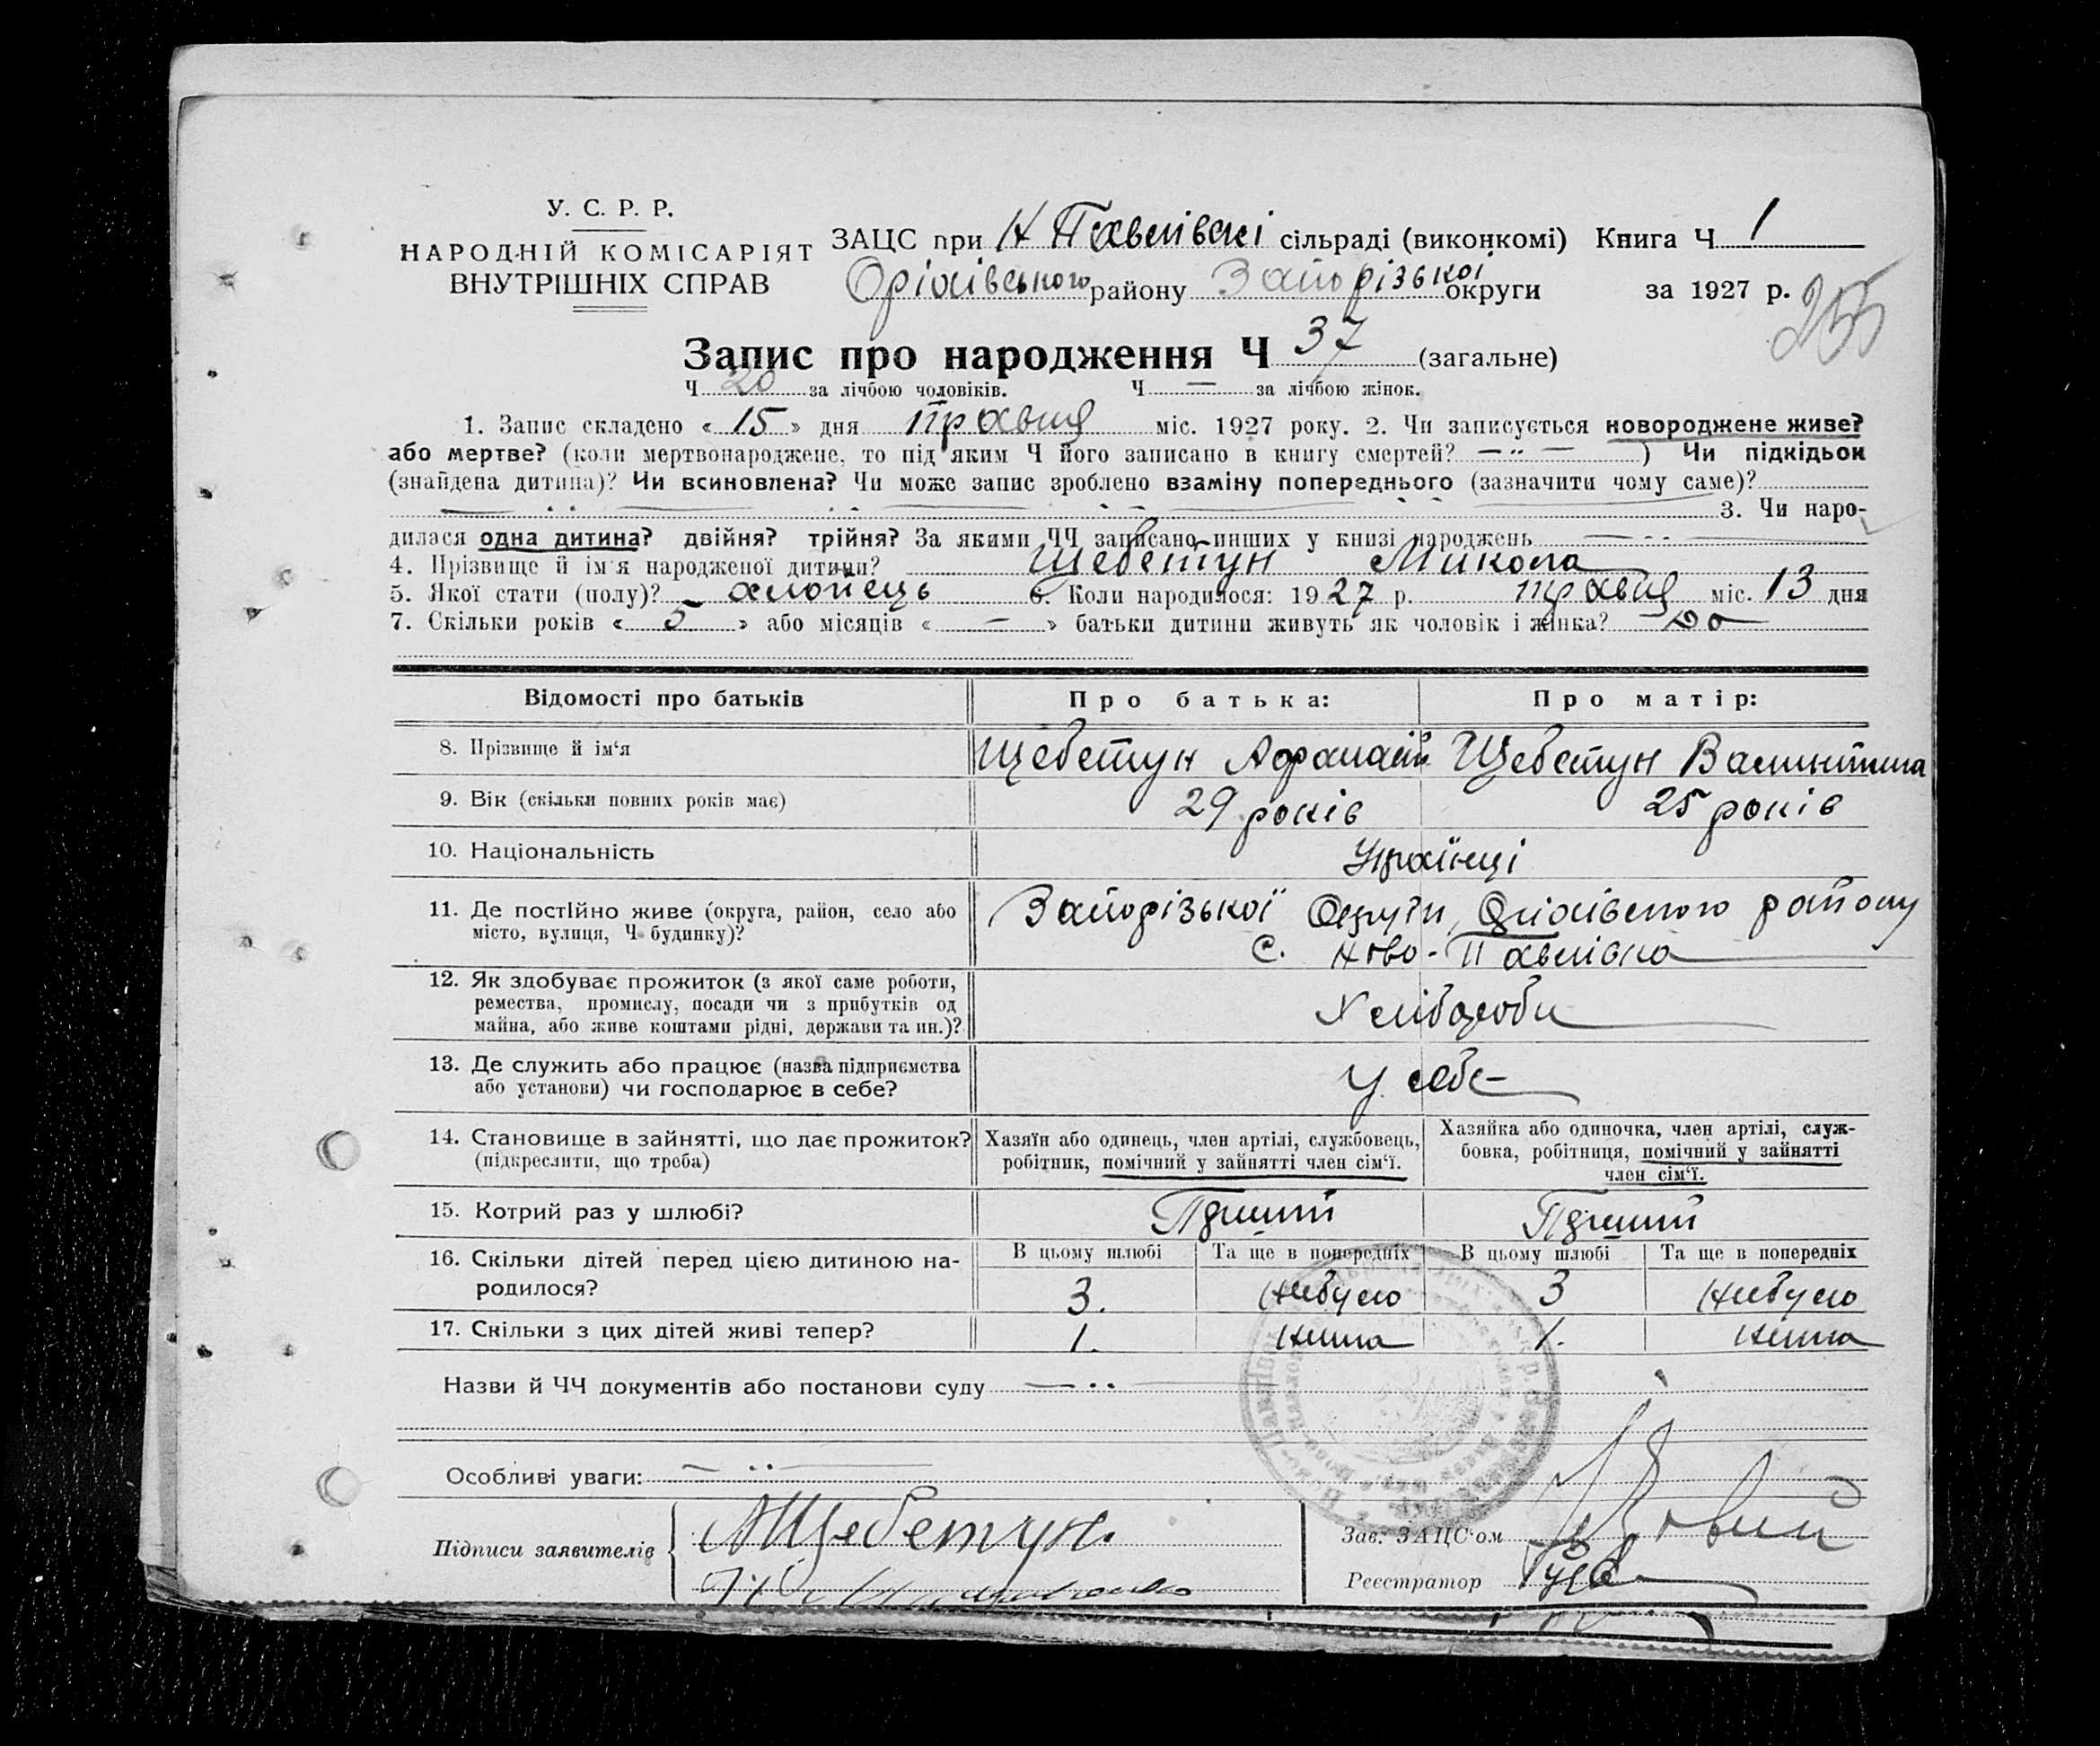 У. С. Р. Р.
НАРОДНІЙ КОМІСАРІЯТ
ВНУТРІШНІХ СПРАВ
ЗАЦС при Н Павлівскі сільраді (виконкомі) Книга Ч 1
Оріхівського району Запорізької округи за 1927 р.
255
Запис про народження Ч 37 (загальне)
Ч 20 за лічбою чоловіків. Ч — за лічбою жінок.
1. Запис складено « 15 » дня травня міс. 1927 року. 2. Чи записується новороджене живе?
або мертве? (коли мертвонароджене, то під яким Ч його записано в книгу смертей? —„— ) Чи підкідьок
(знайдена дитина)? Чи всиновлена? Чи може запис зроблено взаміну попереднього (зазначити чому саме)?
3. Чи наро-
дилася одна дитина? двійня? трійня? За якими ЧЧ записано инших у книзі народжень
4. Прізвище й ім'я народженої дитини? Щебетун Микола
5. Якої стати (полу)? хлопець 6. Коли народилося: 1927 р. травня міс. 13 дня
7. Скільки років « 5 » або місяців « — » батьки дитини живуть як чоловік і жінка? Да
Відомості про батьків Про батька: Про матір:
8. Прізвище й ім'я Щебетун Афанасій Щебетун Валинтина
9. Вік (скільки повних років має) 29 років 25 років
10. Національність Українці
11. Де постійно живе (округа, район, село або
місто, вулиця, Ч будинку)?
Запорізької Округи, Оріхівського району
с. Ново-Павлівка
12. Як здобуває прожиток (з якої саме роботи,
ремества, промислу, посади чи з прибутків од
майна, або живе коштами рідні, держави та ин.)?
Хлібороби
13. Де служить або працює (назва підприємства
або установи) чи господарює в себе?
У себе
14. Становище в зайнятті, що дає прожиток?
(підкреслити, що треба)
Хазяїн або одинець, член артілі, службовець,
робітник, помічний у зайнятті член сім'ї.
Хазяйка або одиночка, член артілі, служ-
бовка, робітниця, помічний у зайнятті
член сім'ї.
15. Котрий раз у шлюбі? Перший Перший
16. Скільки дітей перед цією дитиною на-
родилося?
В цьому шлюбі Та ще в попередніх В цьому шлюбі Та ще в попередніх
3. Небуло 3 Небуло
17. Скільки з цих дітей живі тепер? 1. Нема 1. Нема
Назви й ЧЧ документів або постанови суду
Особливі уваги:
Підписи заявителів АЩебетун
Зав. ЗАЦС'ом
Реєстратор